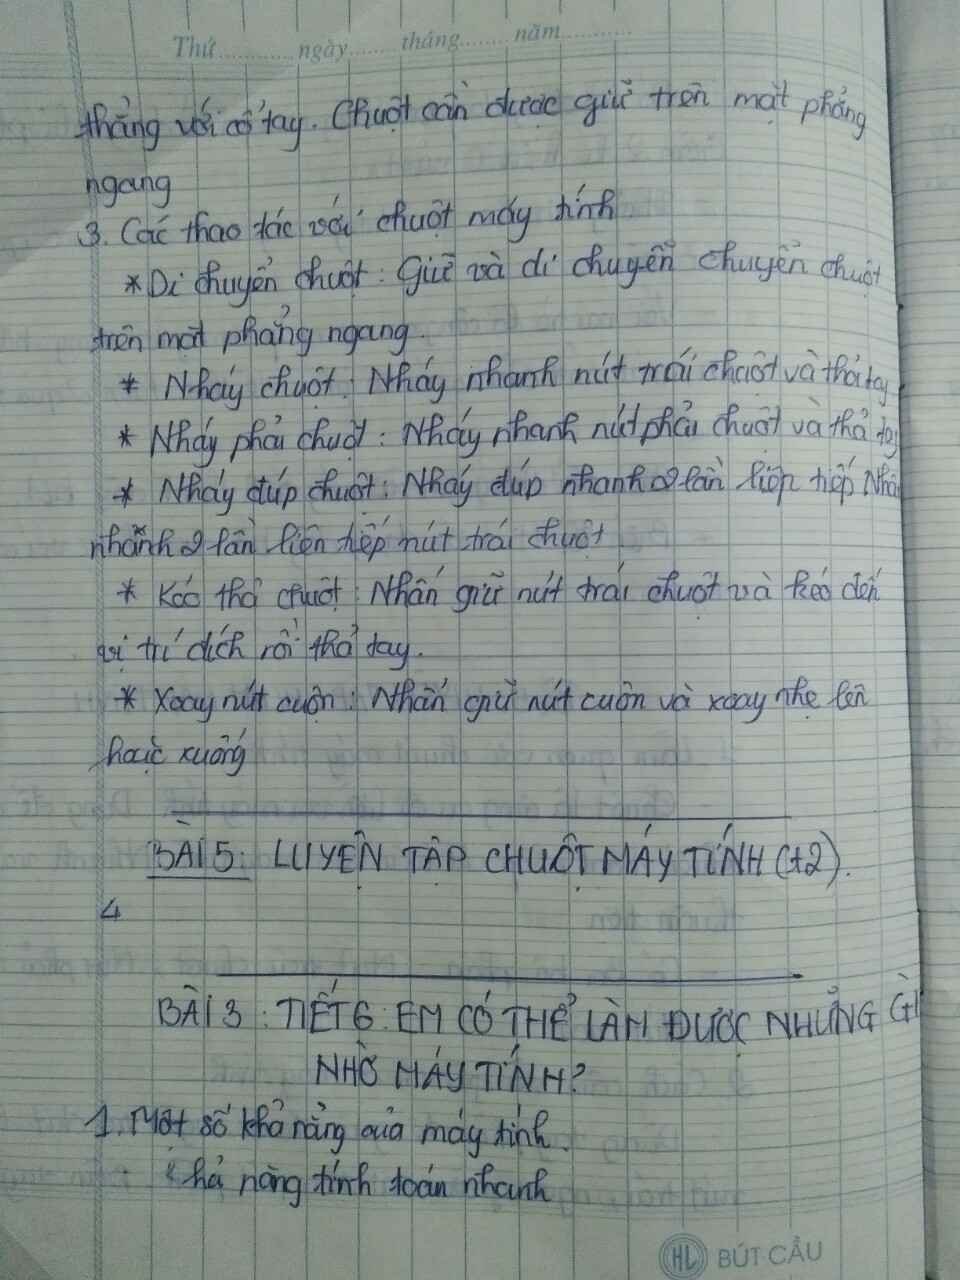 Thứ ngày tháng năm
thẳng với cổ tay. Chuột cần được giữ trên mặt phẳng
ngang
3. Các thao tác với chuột máy tính
*Di chuyển chuột: Giữ và di chuyển chuyển chuột
trên mặt phẳng ngang.
* Nháy chuột: Nháy nhanh nút trái chuột và thả tay
* Nháy phải chuột: Nháy nhanh nút phải chuột và thả tay
* Nháy đúp chuột: Nháy đúp nhanh 2 lần liên tiếp
nhanh 2 lần liên tiếp nút trái chuột
* Kéo thả chuột: Nhấn giữ nút trái chuột và kéo đến
vị trí đích rồi thả tay.
* Xoay nút cuộn: Nhấn giữ nút cuộn và xoay nhẹ lên
hoặc xuống
BÀI 5: LUYỆN TẬP CHUỘT MÁY TÍNH (t2).
4
BÀI 3: TIẾT 6: EM CÓ THỂ LÀM ĐƯỢC NHỮNG GÌ
NHỜ MÁY TÍNH?
1. Một số khả năng của máy tính.
Khả năng tính toán nhanh
HL BÚT CẦU